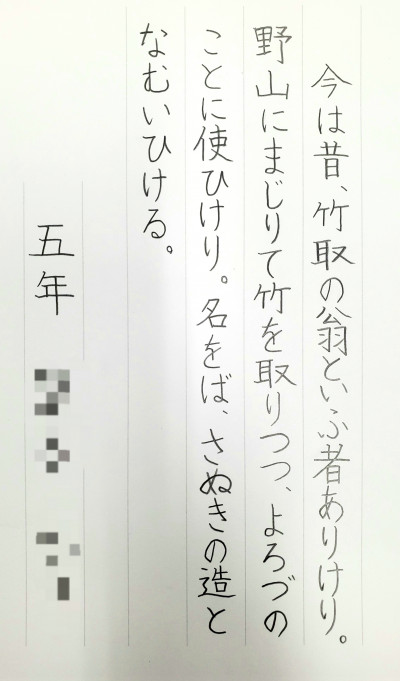 今は昔、竹取の翁といふ者ありけり。
野山にまじりて竹を取りつつ、よろづの
ことに使ひけり。名をば、さぬきの造と
なむいひける。
五年